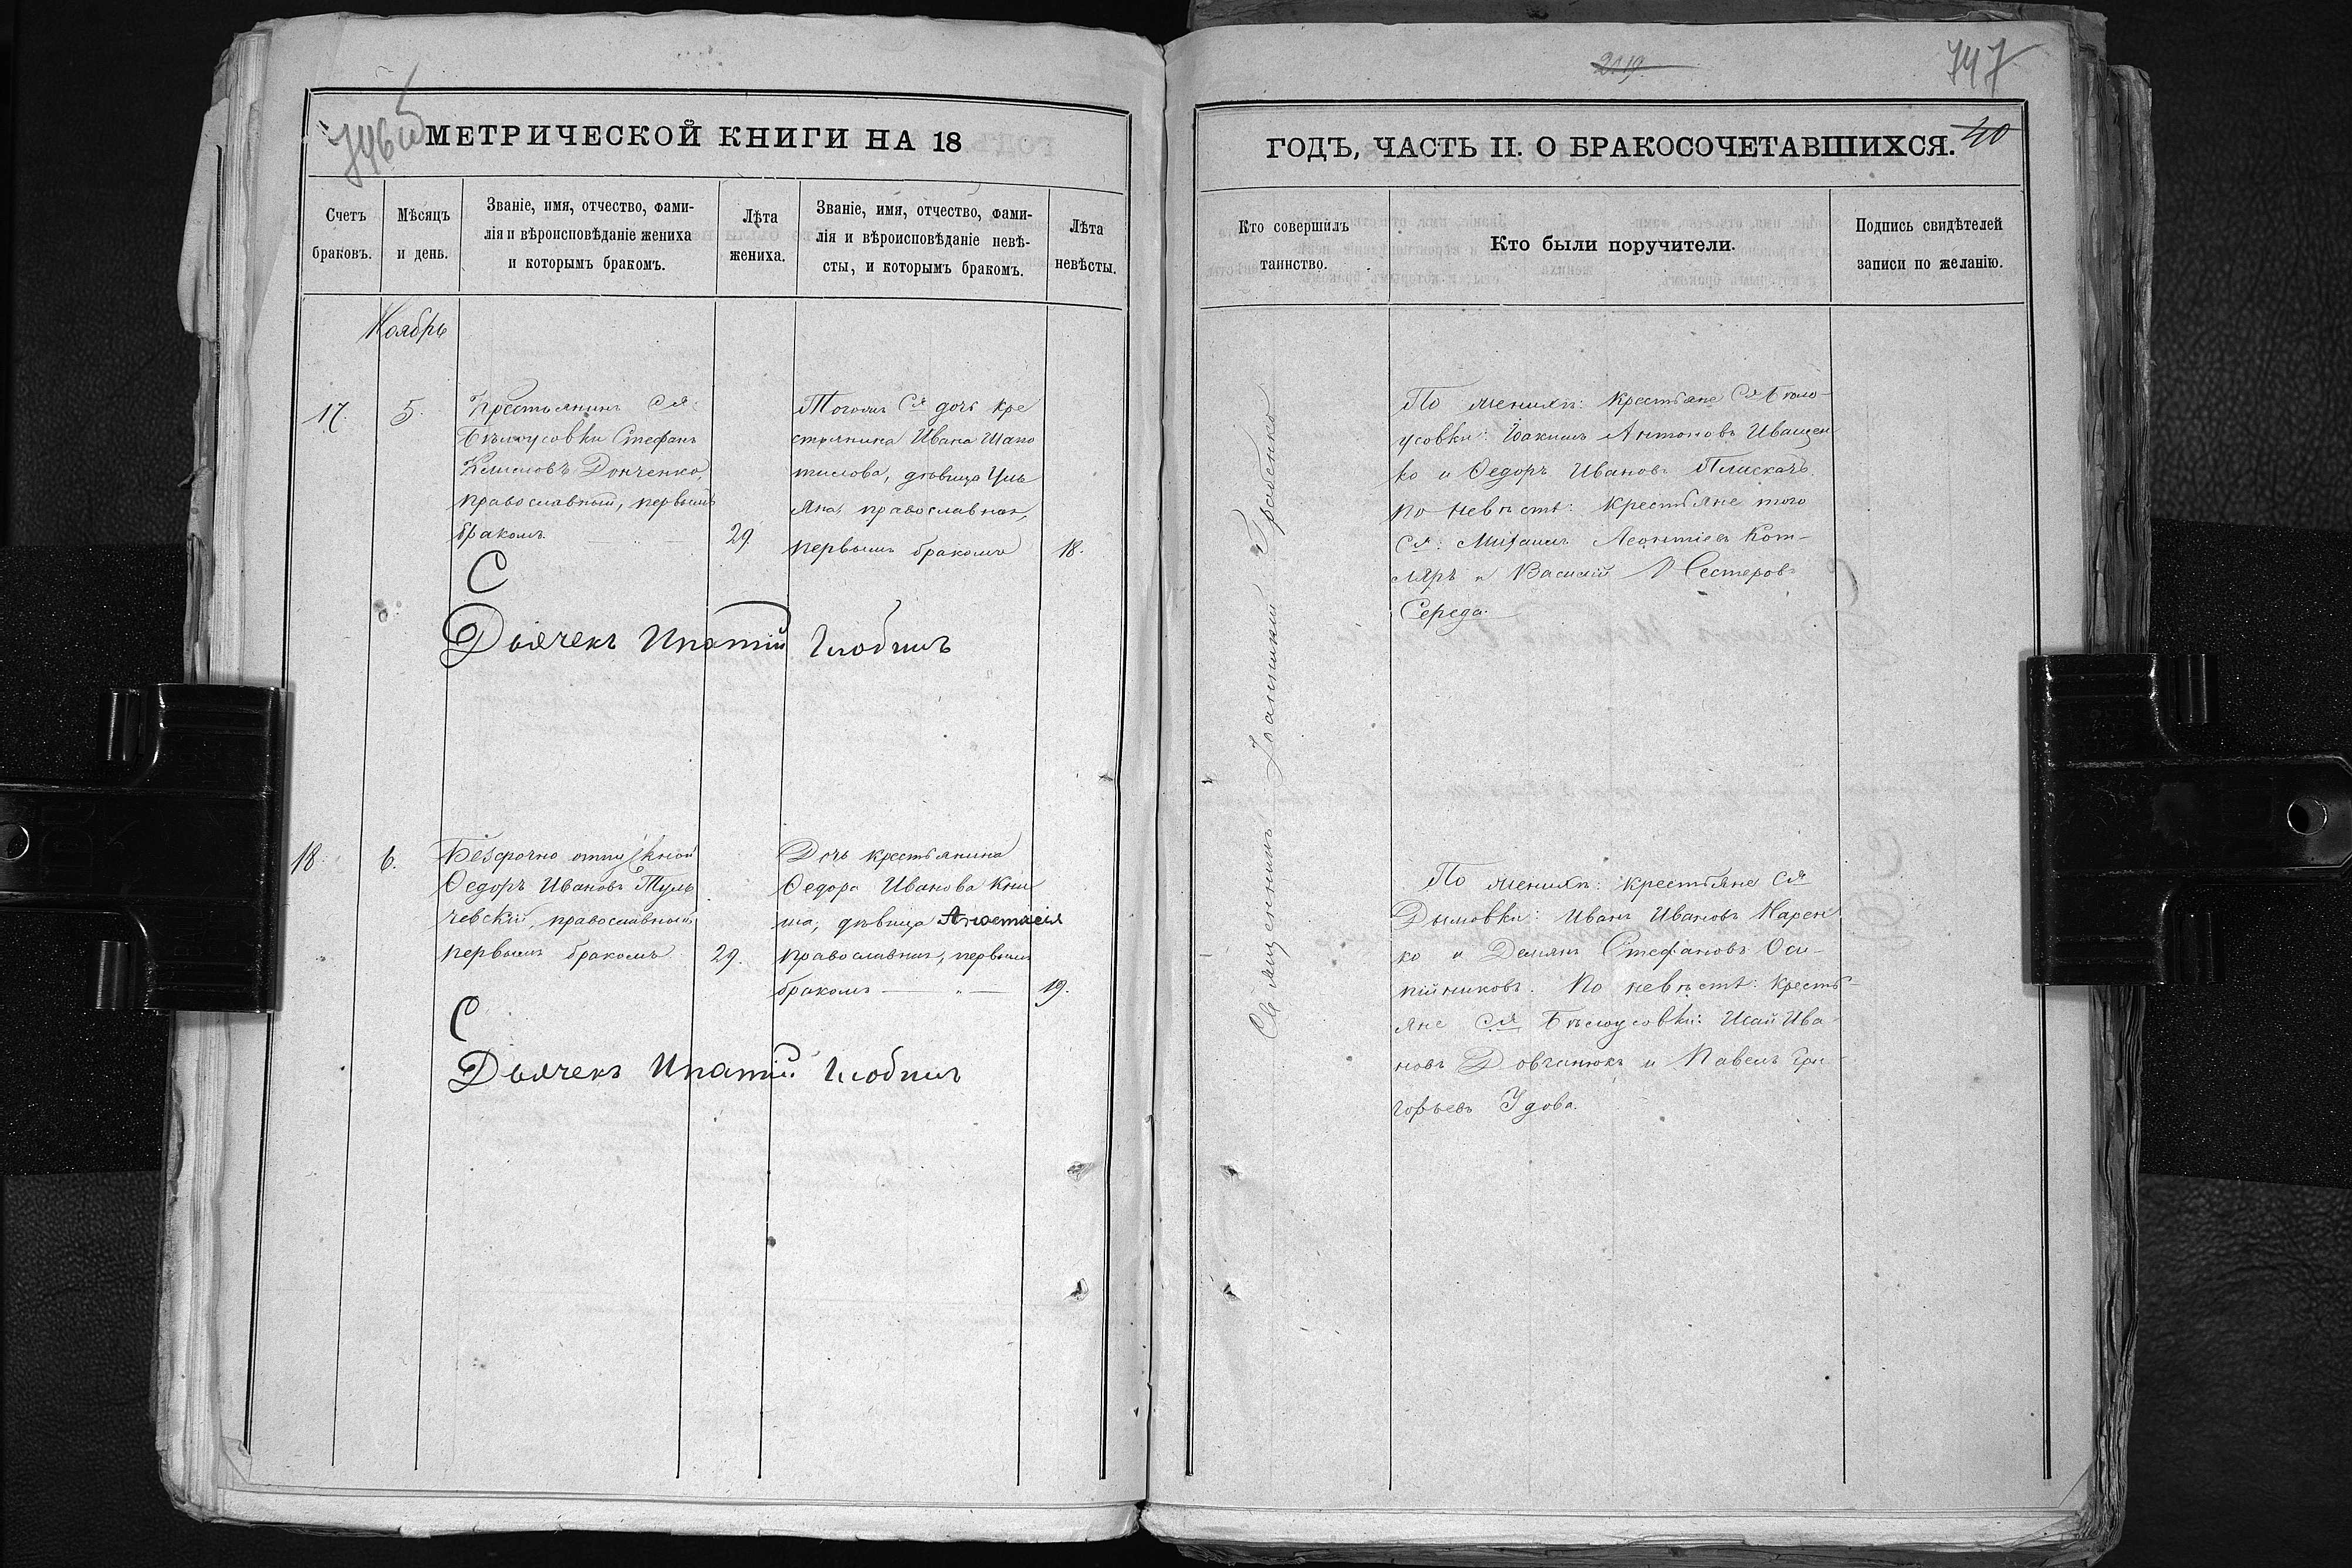 746 об
МЕТРИЧЕСКОЙ КНИГИ НА 18
Счетъ браковъ.
Мѣсяцъ и день.
Званіе, имя, отчество, фами-
лія и вѣроисповѣданіе жениха
и которымъ бракомъ.
Лѣта жениха.
Званіе, имя, отчество, фами-
лія и вѣроисповѣданіе невѣ-
сты, и которымъ бракомъ.
Лѣта невѣсты.
Ноябрь
17.
5.
Крестьянинъ Сл.
Бѣлоусовки Стефанъ
Донченко,
православный, первымъ
бракомъ
29.
Тогожъ Сл дочь кре
стьянина Ивана Шапо
, дѣвица Уль
яна, православная,
первымъ бракомъ
18.
С
Дьячекъ Ипатій
18.
6.
Безсрочно отпускной
Ѳедоръ Ивановъ Туль
чевскій, православный
первымъ бракомъ
29.
Дочь крестьянина
Ѳедора Иванова Кни
ша, дѣвица Анастасія
православная, первымъ
бракомъ — " —
19.
С
Дьячекъ Ипатій
2119
747
ГОДЪ, ЧАСТЬ II. О БРАКОСОЧЕТАВШИХСЯ.
40
Кто совершилъ
таинство.
Кто были поручители.
Подпись свидѣтелей
записи по желанію.
Священникъ Іоанникій Грабенко
По женихѣ: крестьяне Сл Бѣло-
усовки: Іоакимъ Антоновъ Иващен
ко и Ѳедоръ Ивановъ Плискачъ.
По невѣстѣ: крестьяне того
Сл: Михаилъ Леонтіевъ Кот-
ляръ и Василій Нестеровъ
Середа.
По женихѣ: крестьяне Сл
Дымовки: Иванъ Ивановъ Марен
ко и Демянъ Стефановъ Оси-
пійниковъ. По невѣстѣ: Кресть-
яне Сл Бѣлоусовки: Исай Ива-
новъ Довганюкъ и Павелъ Гри-
горьевъ Удова.